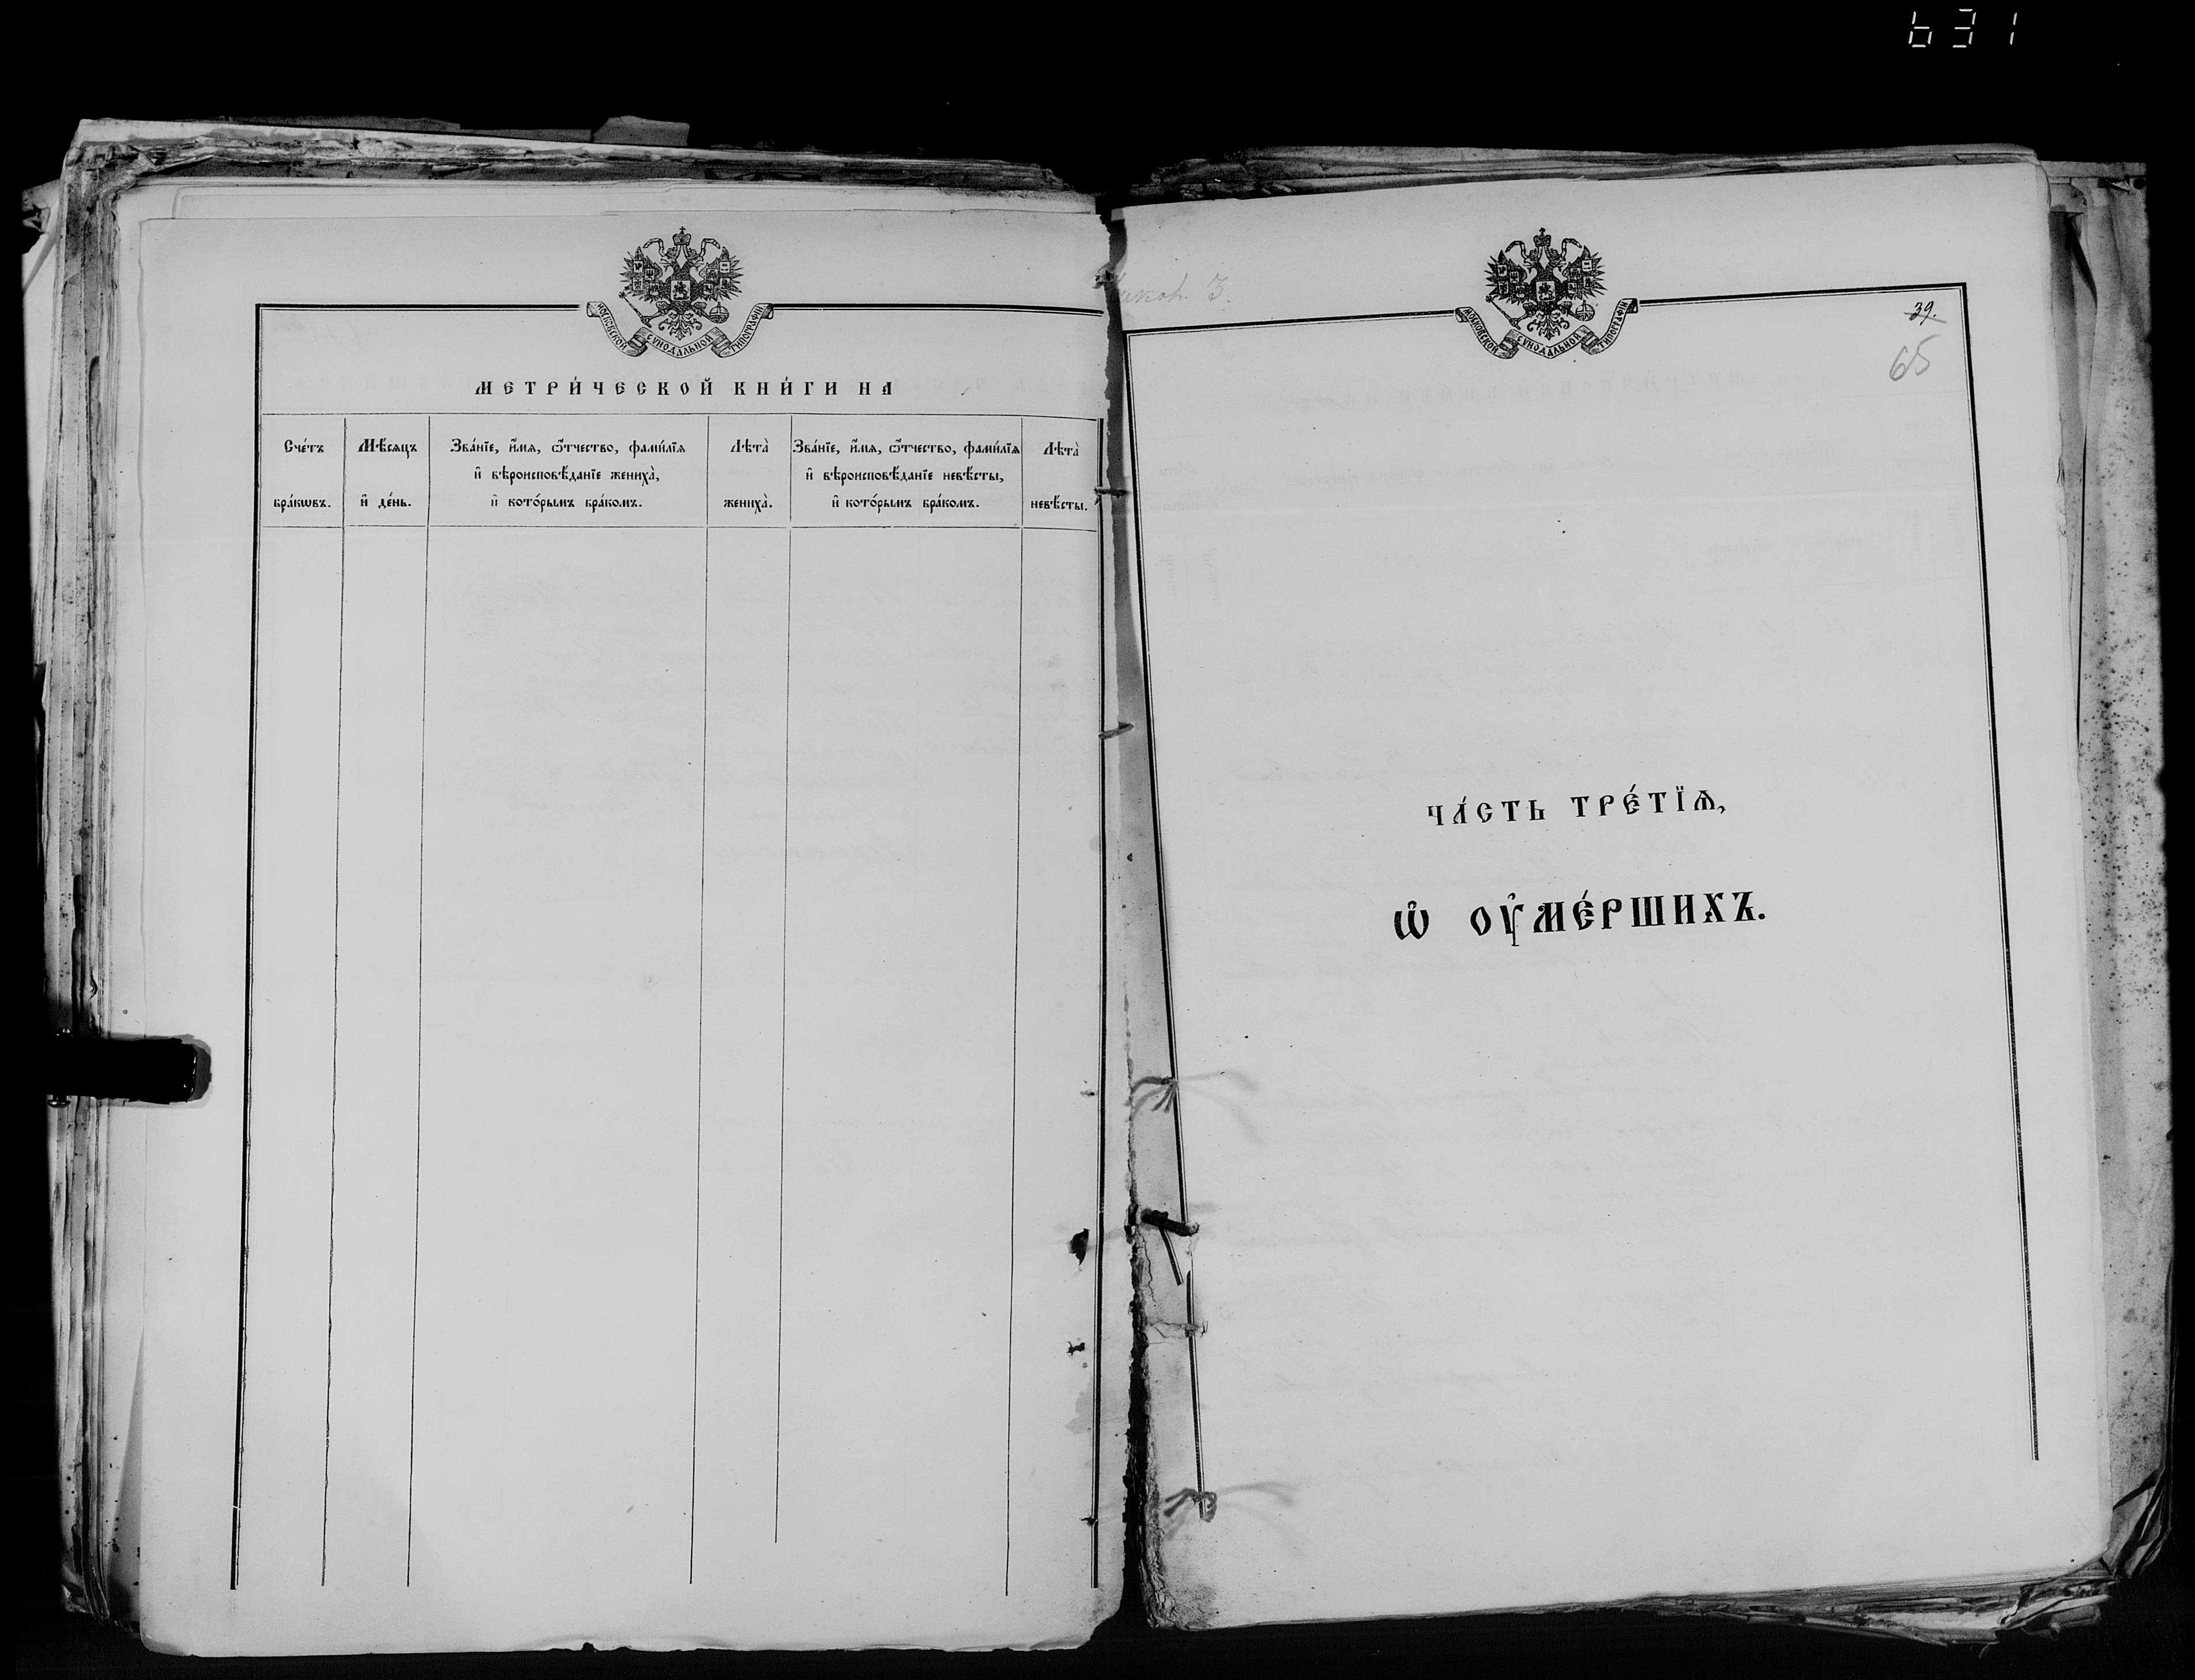 631
МОСКОВСКОЙ СѴНОДАЛЬНОЙ ТИПОГРАФІИ
МЕТРИ́ЧЕСКОЙ КНИ́ГИ НА
Сче́тъ бра́кѡвъ.
Мѣ́сяцъ и҆ де́нь.
Зва́нїе, и҆́мя, ѻ҆́тчество, фами́лїя
и҆ вѣроисповѣ́данїе жениха̀,
и҆ кото́рымъ бра́комъ.
Лѣта̀ жениха̀.
Зва́нїе, и҆́мя, ѻ҆́тчество, фами́лїя
и҆ вѣроисповѣ́данїе невѣ́сты,
и҆ кото́рымъ бра́комъ.
Лѣта̀ невѣ́сты.
З.
МОСКОВСКОЙ СѴНОДАЛЬНОЙ ТИПОГРАФІИ
39.
65
ЧА́СТЬ ТРЕ́ТЇѦ,
Ѡ҆ ОУ҆МЕ́РШИХЪ.